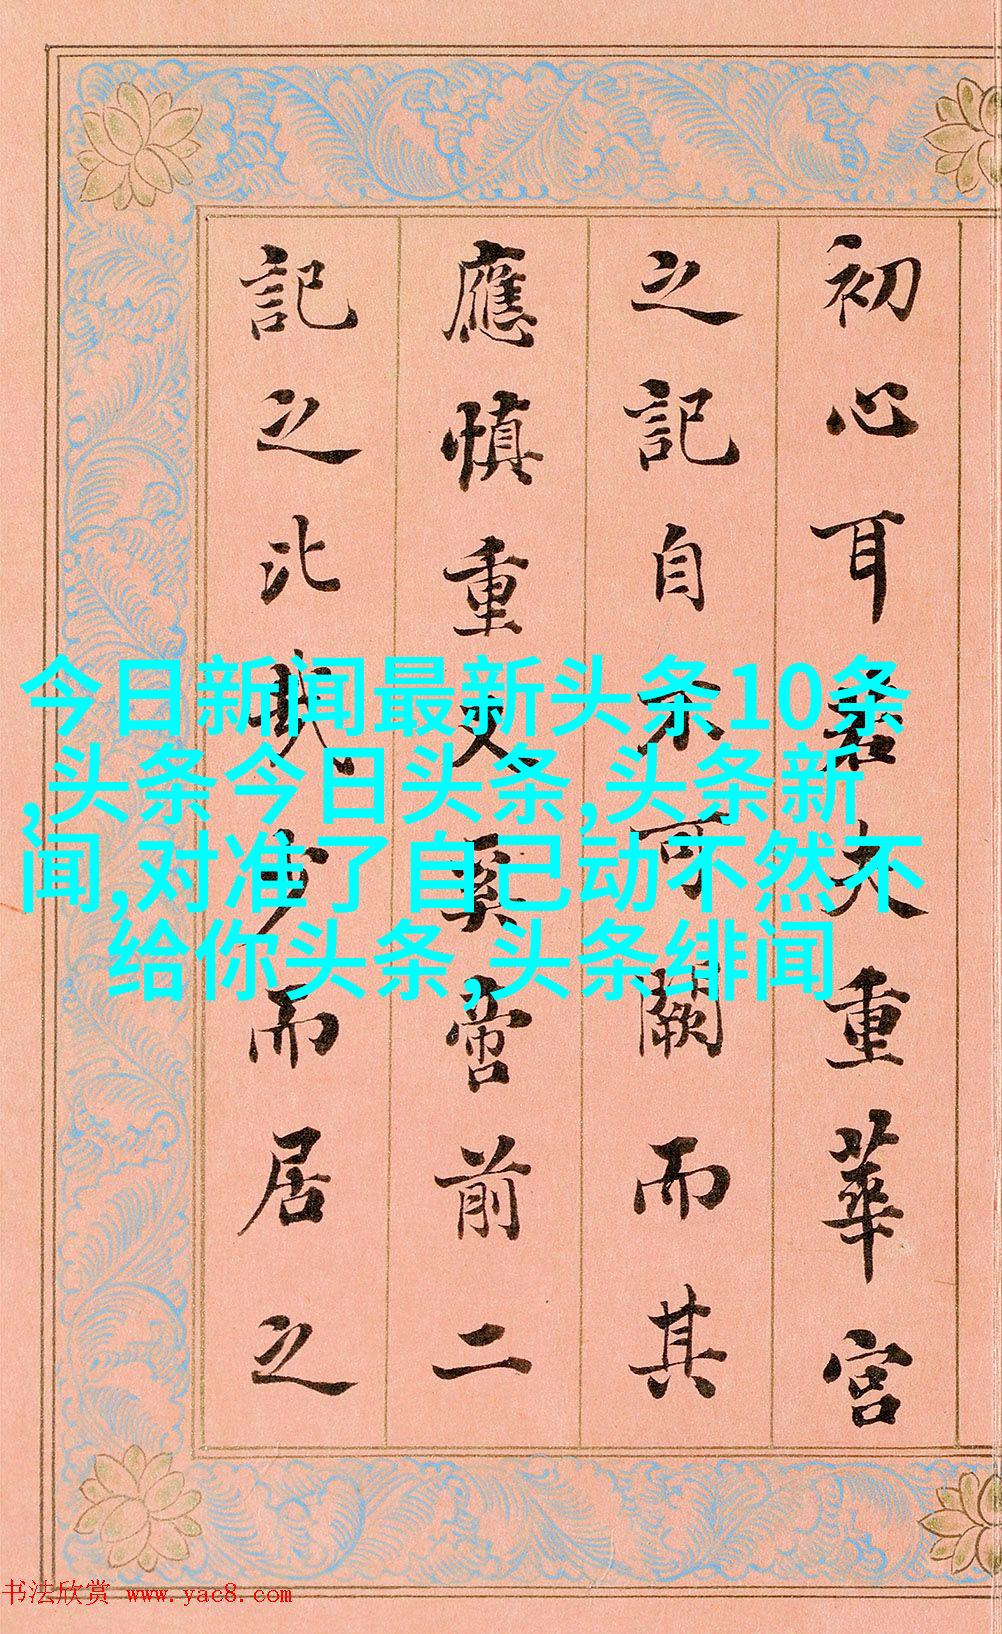 初心耳若夫重華宮
之記自不可闕而其
應慎重又奚啻前二
記之比哉少而居之
今日新闻最新头条10条
,头条今日头条,头条新
闻,对准了自己动不然不
给你头条,头条绯闻
书法欣赏 www.yac8.com